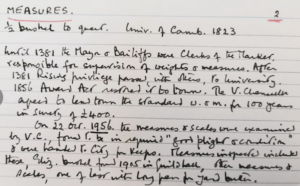 MEASURES. 2
½ bushel to quart. Univ. of Camb. 1823
Until 1381 the Mayor & Bailiffs were Clerks of the Market,
responsible for supervision of weights & measures. After
1381 Rising privilege passed to University.
1856 Award Act restored it to town. The V. Chancellor
agreed to lend town the standard w. & m. for 100 years
in surety of £400.
On 22 Oct. 1956 the measures & scales were examined
by V.C., found to be in required "good plight & condition"
& were handed to City, in keeps. Measures inspected included
bushel from 1905 in Guildhall, other measures &
scales, one of box with long pan for yard butter.